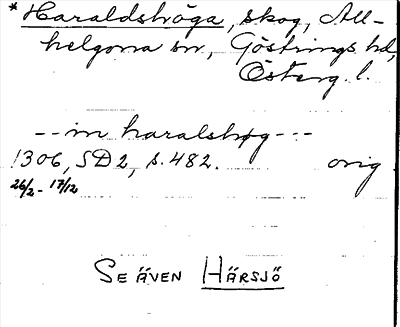 * Haraldshöga, skog, All-
helgona sn, Göstrings hd,
Österg. l.
-- in haralshøg ---
1306, SD 2, s. 482. orig
26/2 - 17/12
SE ÄVEN HÄRSJÖ